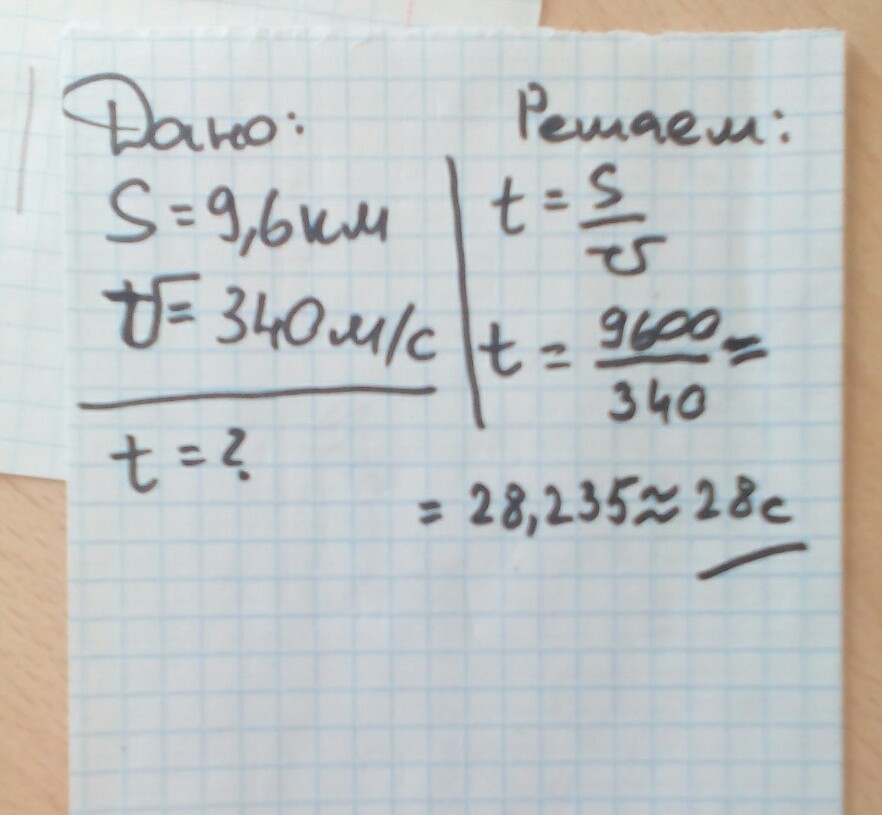 Дано:
S = 9,6 км
υ = 340 м/с
t = ?
Решаем:
t = S/υ
t = 9600/340 =
= 28,235 ≈ 28 с